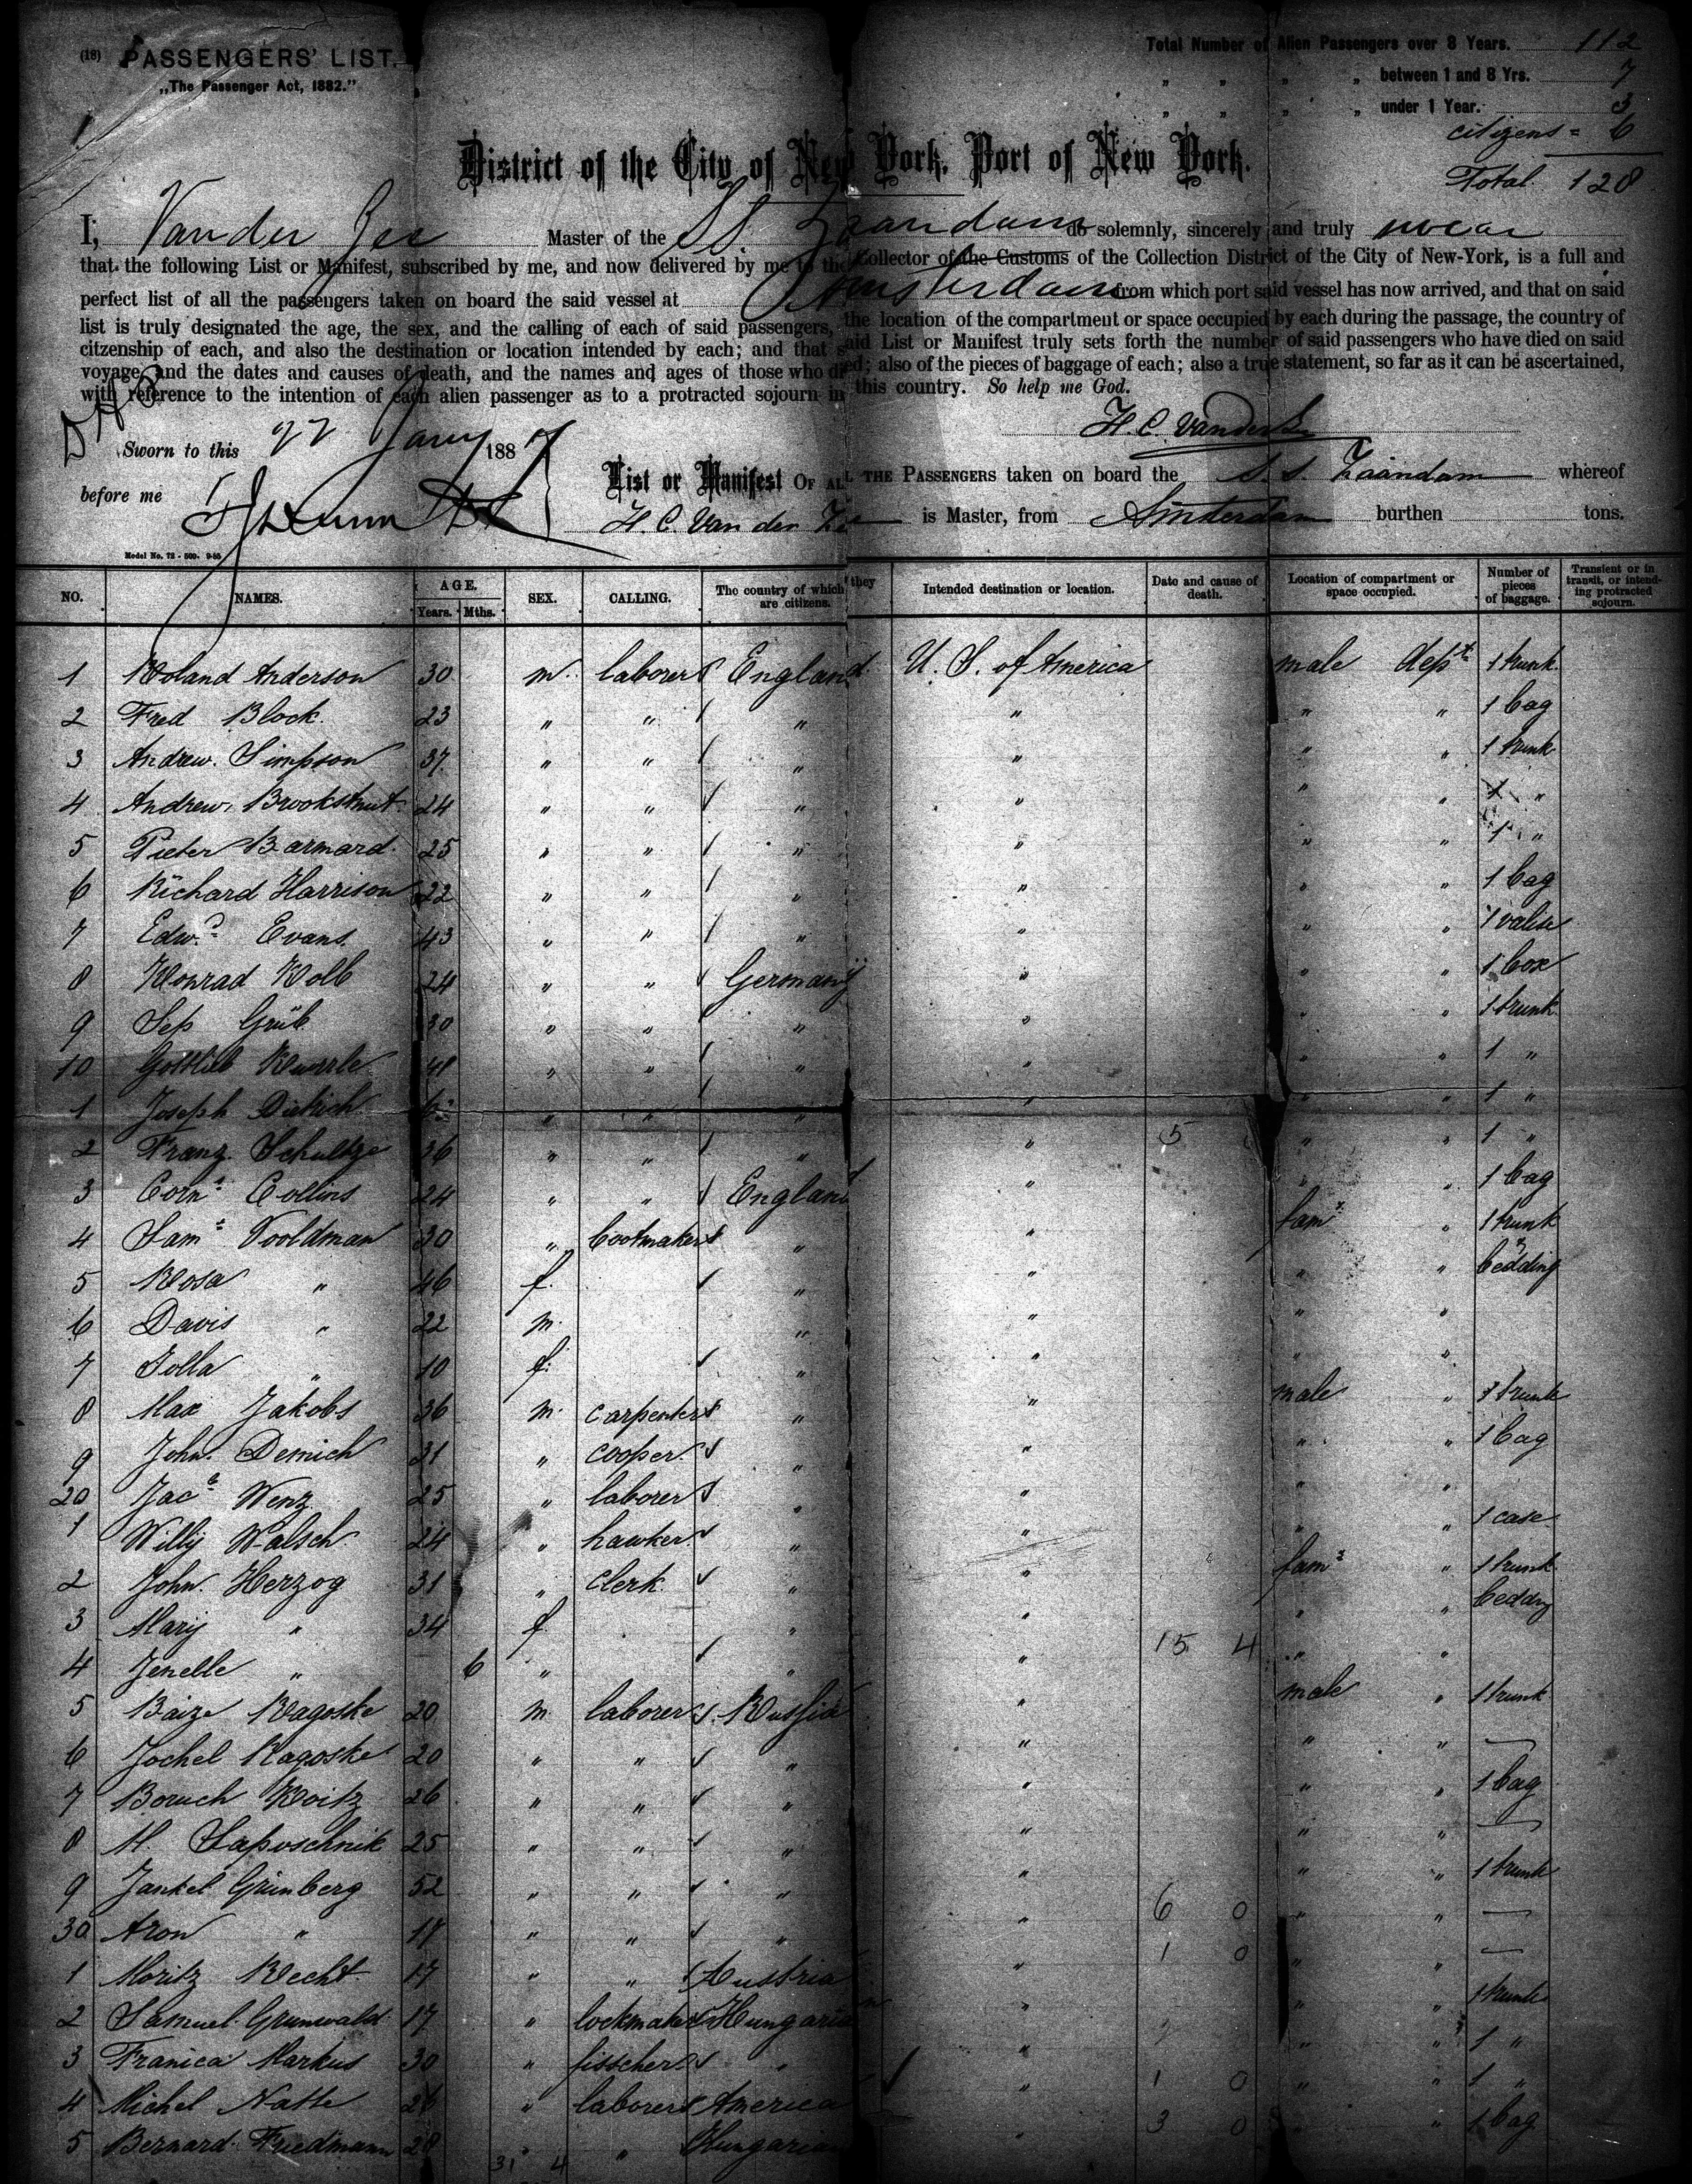 (18) PASSENGERS' LIST.
„The Passenger Act, 1882."
1
Total Number of Alien Passengers over 8 Years. 112
„ „ „ „ between 1 and 8 Yrs. 7
„ „ „ „ under 1 Year. 3
citizens = 6
Total 128
District of the City of New York, Port of New York.
I, Van der Zee Master of the SS. Zaandam do solemnly, sincerely and truly swear
that the following List or Manifest, subscribed by me, and now delivered by me to the Collector of the Customs of the Collection District of the City of New-York, is a full and
perfect list of all the passengers taken on board the said vessel at Amsterdam from which port said vessel has now arrived, and that on said
list is truly designated the age, the sex, and the calling of each of said passengers, the location of the compartment or space occupied by each during the passage, the country of
citzenship of each, and also the destination or location intended by each; and that said List or Manifest truly sets forth the number of said passengers who have died on said
voyage, and the dates and causes of death, and the names and ages of those who died; also of the pieces of baggage of each; also a true statement, so far as it can be ascertained,
with reference to the intention of each alien passenger as to a protracted sojourn in this country. So help me God.
H. C. Vander Zee
Sworn to this 22 Jany 1887
before me
List or Manifest OF ALL THE PASSENGERS taken on board the S. S. Zaandam whereof
H. C. Van der Zee is Master, from Amsterdam burthen tons.
Model No. 72 - 500- 9-85
NO. NAMES. AGE. Years. Mths. SEX. CALLING. The country of which they are citizens. Intended destination or location. Date and cause of death. Location of compartment or space occupied. Number of pieces of baggage. Transient or in transit, or intending protracted sojourn.
1 Roland Anderson 30 m. laborer England U. S. of America male dept 1 trunk
2 Fred Block 23 „ „ „ „ „ „ 1 bag
3 Andrew Simpson 37 „ „ „ „ „ „ 1 trunk
4 Andrew 24 „ „ „ „ „ „ 1 „
5 Pieter Barnard 25 „ „ „ „ „ „ 1 „
6 Richard Harrison 22 „ „ „ „ „ „ 1 bag
7 Edwd Evans 43 „ „ „ „ „ „ 1 valise
8 Konrad Kolb 24 „ „ Germany „ „ „ 1 box
9 Sep Grüb 30 „ „ „ „ „ „ 1 trunk
10 Gottlieb Kuerrle 41 „ „ „ „ „ „ 1 „
1 Joseph Dietrich „ „ „ „ „ „ 1 „
2 Franz Schultze 36 „ „ „ „ 5 „ „ 1 „
3 Corns Collins 24 „ „ England „ „ „ 1 bag
4 Saml Vooldman 30 „ bootmaker „ „ fam „ 1 trunk
5 Rosa „ 46 f. „ „ „ „ bedding
6 Davis „ 22 m. „ „ „ „
7 Jolla „ 10 f. „ „ „ „
8 Max Jakobs 36 m. carpenter „ „ male „ 1 trunk
9 John Demich 31 „ cooper „ „ „ „ 1 bag
20 Jacb Wenz 25 „ laborer „ „ „ „
1 Willy Walsch 24 „ hawker „ „ „ „ 1 case
2 John Herzog 31 „ clerk „ „ fam „ 1 trunk
3 Mary „ 34 f. „ „ „ „ bedding
4 Jenelle „ 6 „ „ „ 15 4 „ „
5 Baize Ragoske 20 m laborer Russia „ male „ 1 trunk
6 Jochel Ragoske 20 „ „ „ „ „ „ —
7 Boruch Koitz 26 „ „ „ „ „ „ 1 bag
8 M. Saposchnik 25 „ „ „ „ „ „ —
9 Jankel Grünberg 52 „ „ „ „ „ „ 1 trunk
30 Aron „ 17 „ „ „ „ 6 0 „ „ —
1 Moritz Recht 17 „ „ Austria „ 1 0 „ „ —
2 Samuel Grunwald 17 „ lockmaker Hungarian „ „ „ 1 trunk
3 Franica Markus 30 „ fisscher „ „ „ „ 1 „
4 Michel Natte 26 „ laborer America „ 1 0 „ „ 1 „
5 Bernard Friedmann 28 „ „ Hungarian „ 3 0 „ „ 1 bag
31 4